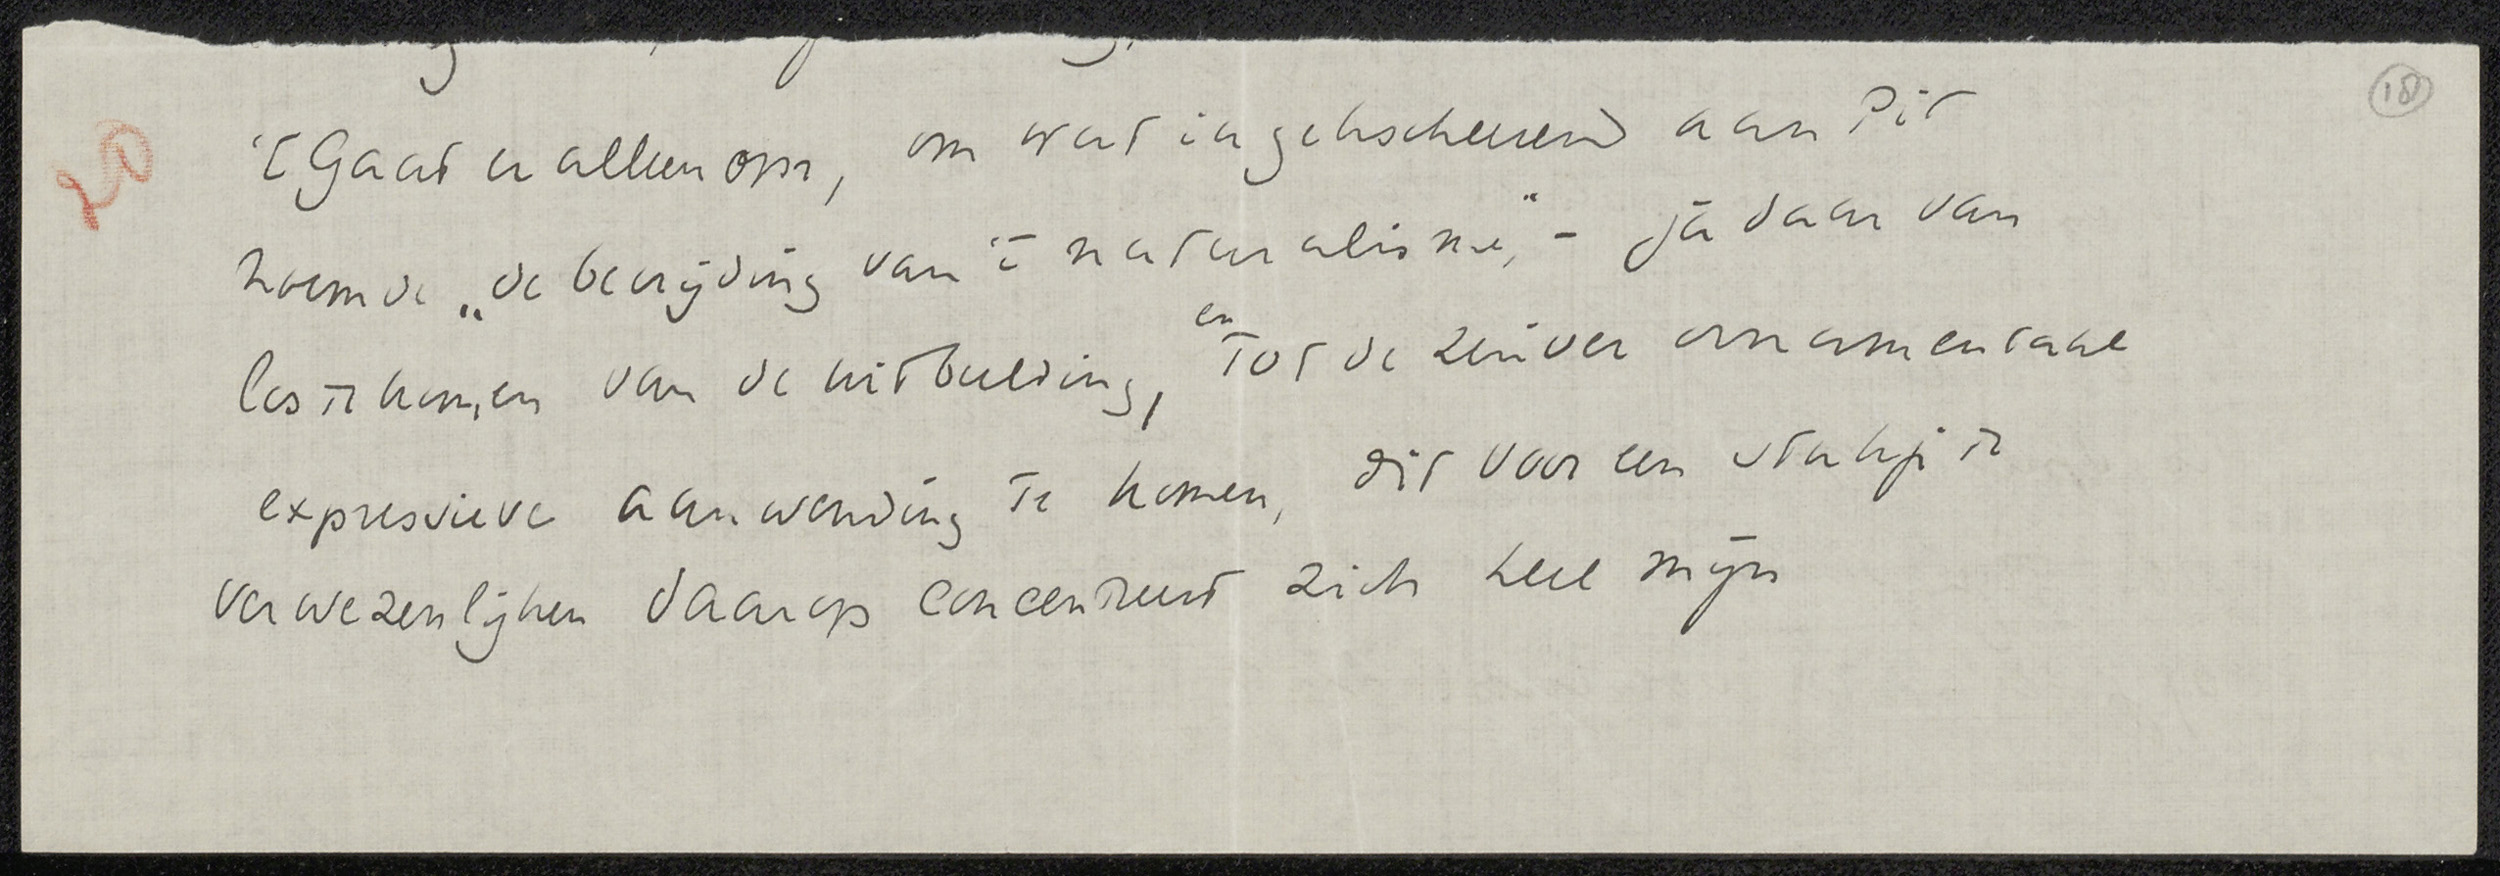 18
20
't Gaat er alleen om, om wat ik gekscheerend aan Pit
noemde „de bevrijding van 't naturalisme", – ja daar van
los te komen van de uitbeelding, en tot de zuiver ornamentale
expressieve aanwending te komen, dit voor een stukje te
verwezenlijken daarop concentreert zich heel mijn